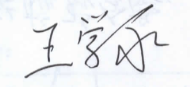 王学永